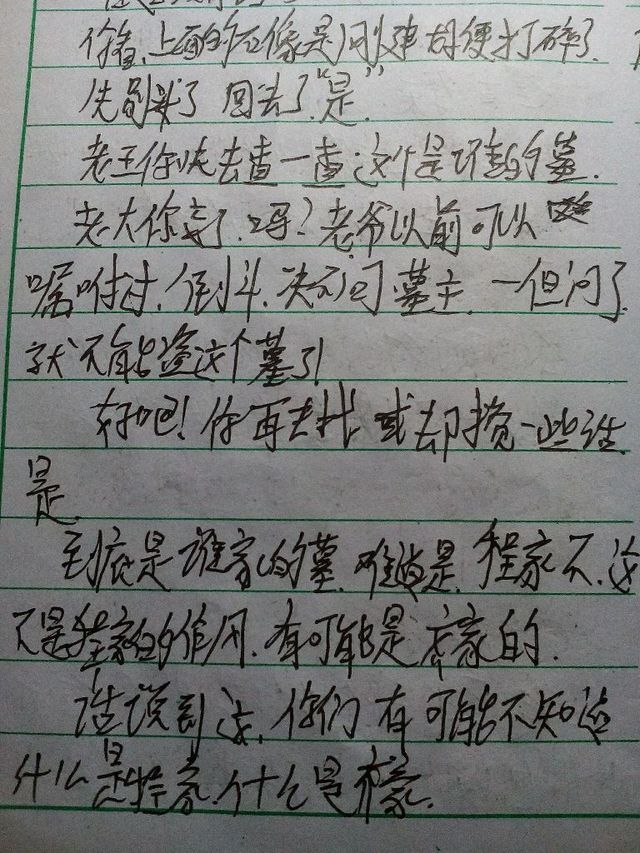 你看,上面的石像是刚建胡便打碎了.
先别哭了 回去了"是"
老王你快去查一查这个是谁的墓.
老大你忘了.吗?老爷以前可以
嘱咐过.倒斗.决不问墓主.一但问了
就不能盗这个墓了!
好吧!你再去找 或去挖一些线
是
到底是谁家的墓.难道是.程家不.这
不是程家的作用.有可能是齐家的.
话说到这,你们有可能不知道
什么是程家.什么是齐家.